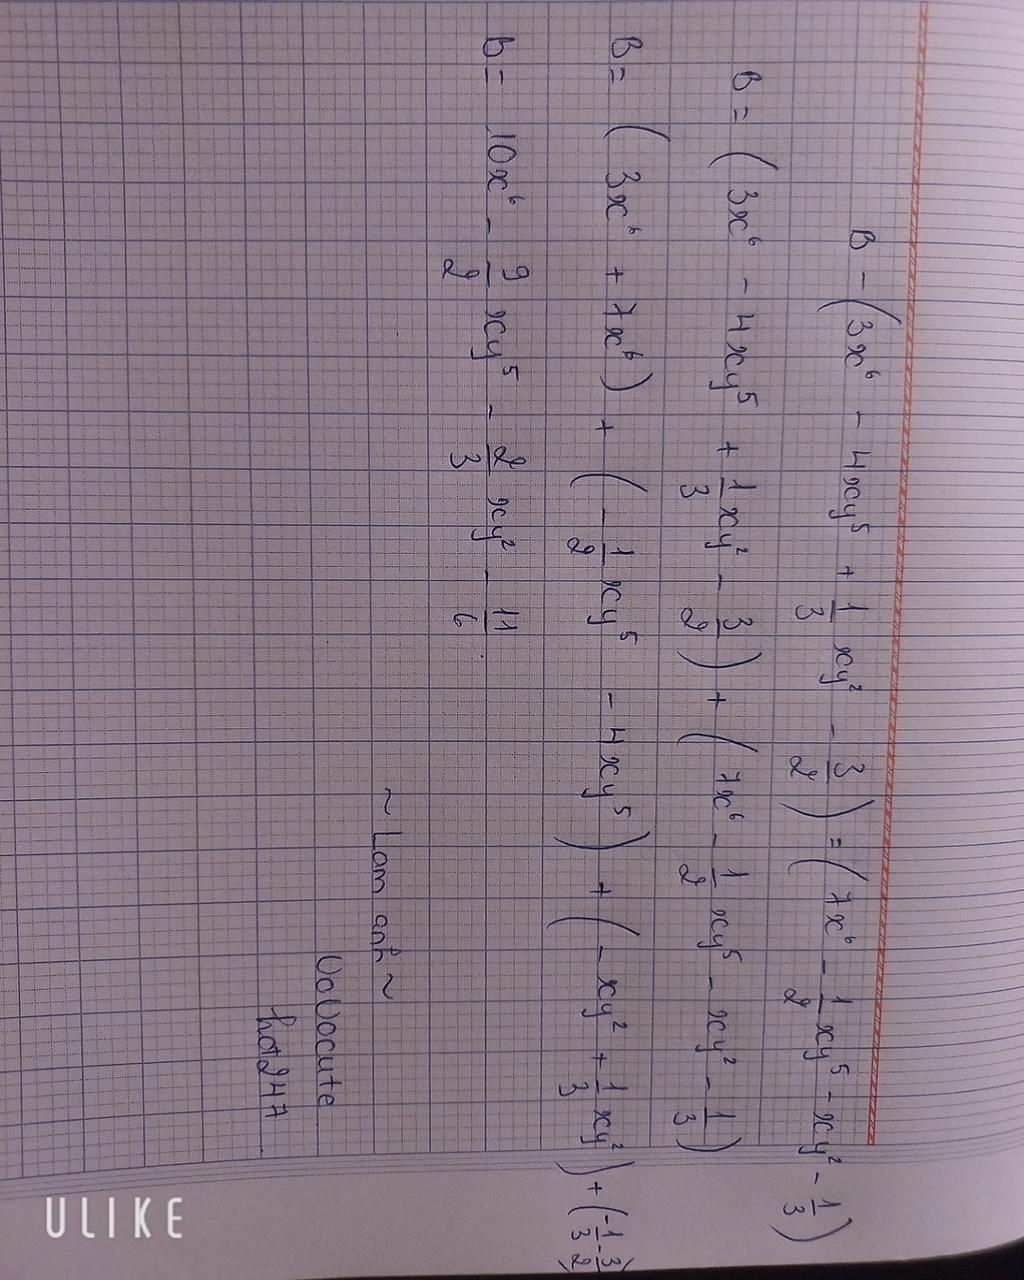 B - (3x⁶ - 4xy⁵ + 1/3 xy² - 3/2) = (7x⁶ - 1/2 xy⁵ - xy² - 1/3)
B = (3x⁶ - 4xy⁵ + 1/3 xy² - 3/2) + (7x⁶ - 1/2 xy⁵ - xy² - 1/3)
B = (3x⁶ + 7x⁶) + (-1/2 xy⁵ - 4xy⁵) + (-xy² + 1/3 xy²) + (-1/3 - 3/2)
B = 10x⁶ - 9/2 xy⁵ - 2/3 xy² - 11/6.
~ Lam anh ~
OoOocute
hot247
ULIKE